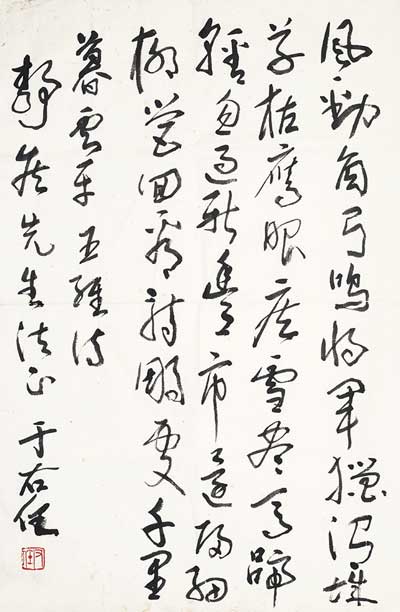 風勁角弓鳴將軍獵渭城
草枯鷹眼疾雪盡馬蹄
輕忽過新豐市還歸細
柳營回看射鵰處千里
暮雲平 王維詩
靜 先生法正 于右任